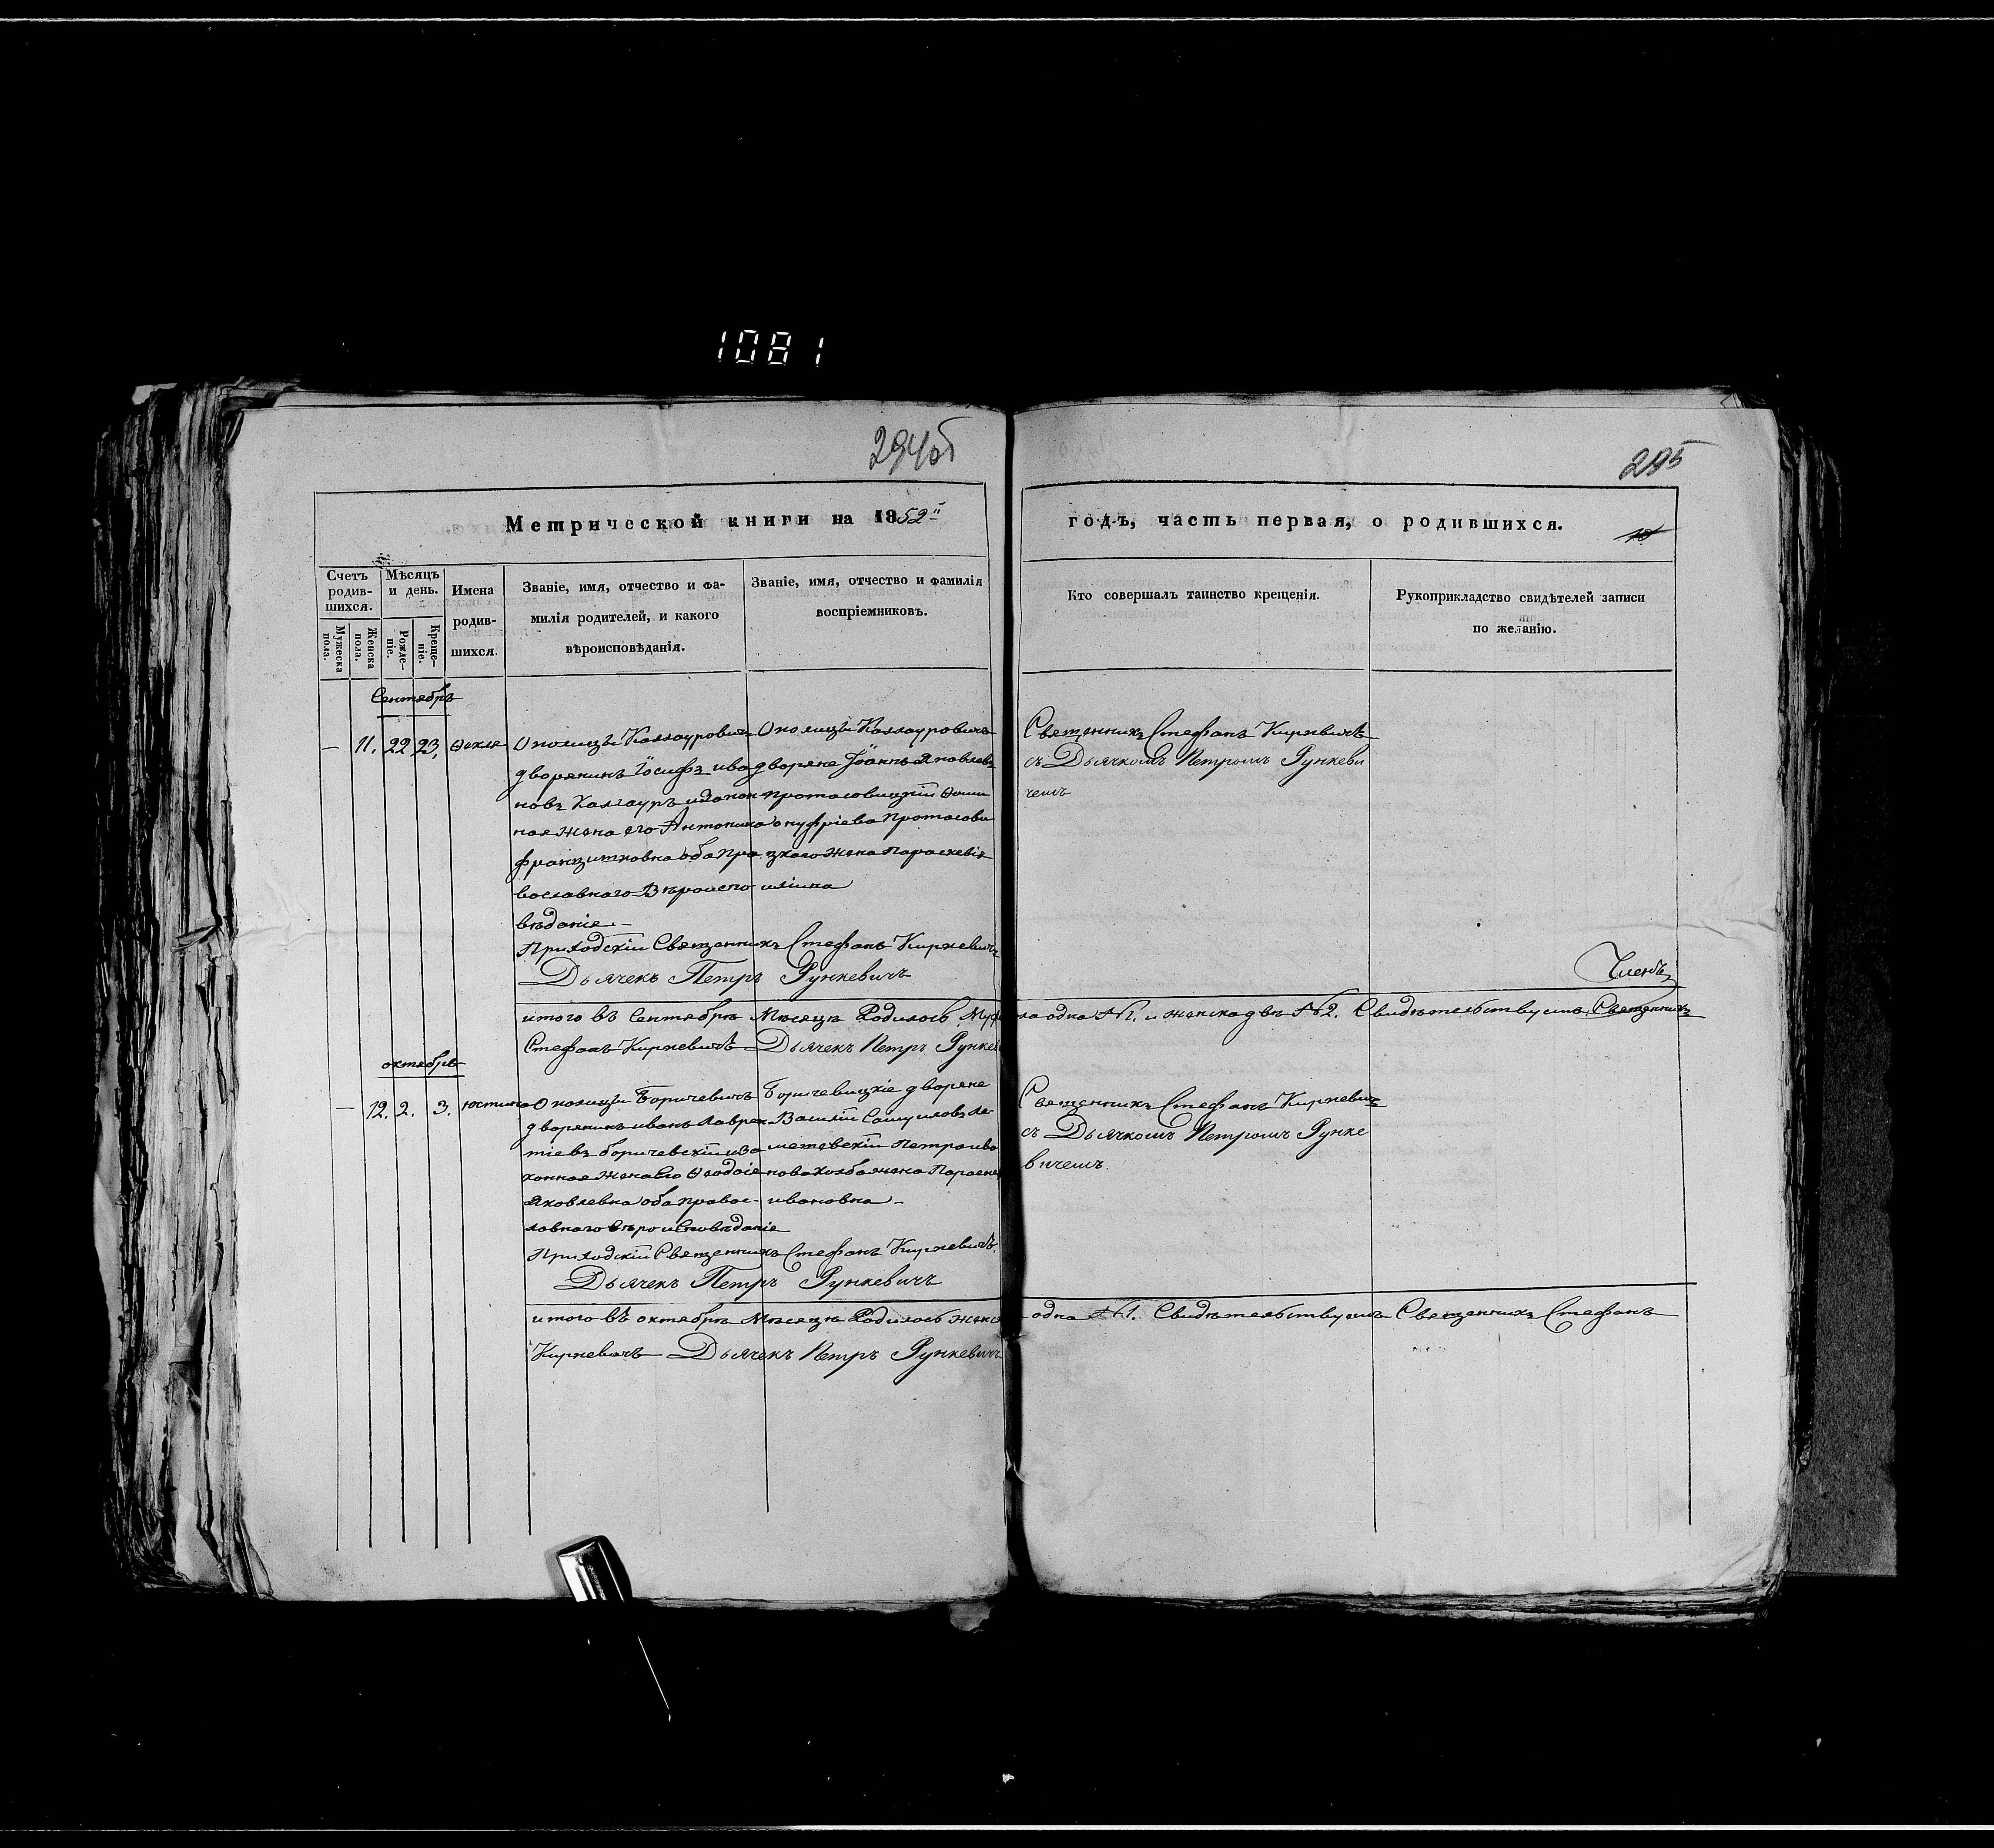 1081
294об
295
Метрической книги на 1852й
годъ, часть первая, о родившихся.
10
Счетъ родив-шихся.
Мѣсяцъ и день.
Имена родив-шихся.
Званіе, имя, отчество и фа-
милія родителей, и какого
вѣроисповѣданія.
Званіе, имя, отчество и фамилія
воспріемниковъ.
Кто совершалъ таинство крещенія.
Рукоприкладство свидѣтелей записи
по желанію.
Мужеска пола.
Женска пола.
Рожде-ніе.
Креще-ніе.
Сентябрь
— 11. 22 23. Ѳекла
Околицы Каллауровичъ
дворянинъ Іосифъ ива
новъ Каллауръ изакон
ная жена его Антонина
францишковна оба пра
вославнаго Вѣроиспо
вѣданіе —
Околицы Каллауровичъ
дворяне Іоаннъ Яковлевъ
Протасовицкій
онуфріева Протасови
цкаго жена Параскевія
Священникъ Стефанъ Киркевичъ
съ Дьячкомъ Петромъ Рункеви
чемъ
Приходскій Священникъ Стефанъ Киркевичъ
Дьячекъ Петръ Рункевичъ
Членъ
итого въ Сентябрѣ Мѣсяцѣ Родилось одна №1. и женска двѣ №2. Свидѣтельствуемъ Священникъ
Стефанъ Киркевичъ Дьячекъ Петръ
октябрь
— 12. 2. 3. Юстина
Околицы Боричевичъ
дворянинъ иванъ Лаврен
тіевъ боричевскій иза
конная жена Его Ѳеодосія
Яковлевна оба правос-
лавнаго вѣроисповѣданіе
Боричевицкіе дворяне
Василій Самуиловъ
Петра ива
нова жена
ивановна —
Священникъ Стефанъ Киркевичъ
съ Дьячкомъ Петромъ Рунке
вичемъ.
Приходскій Священникъ Стефанъ Киркевичъ.
Дьячекъ Петръ Рункевичъ
итого въ октябрѣ Мѣсяцѣ Родилось женс одна №1. Свидѣтельствуемъ Священникъ Стефанъ
Киркевичъ Дьячекъ Петръ Рункевичъ